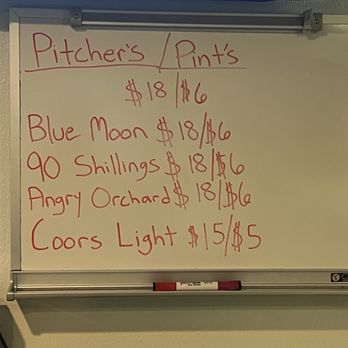 Pitcher's / Pint's
$18/$6
Blue Moon $18/$6
90 Shillings $18/$6
Angry Orchard $18/$6
Coors Light $15/$5